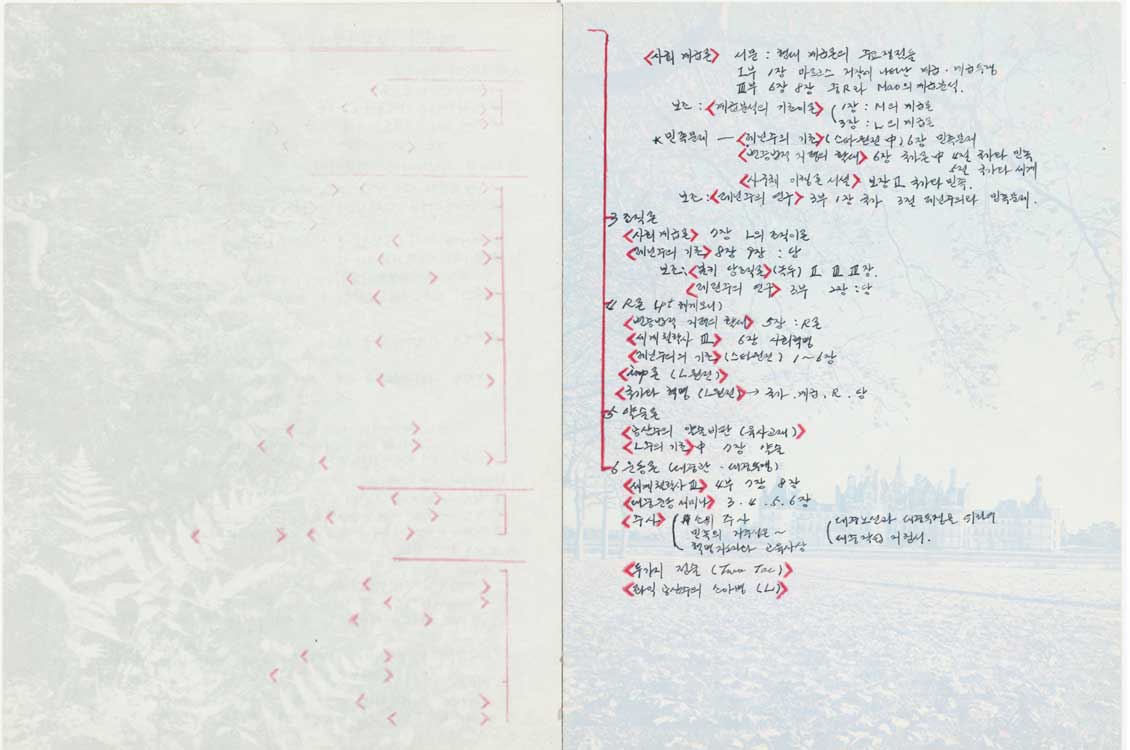 <사회 계급론> 서문 : 현대 계급론의 주요쟁점들
I부 1장 마르크스 저작에 나타난 계급 · 계급투쟁
III부 6장 8장 R과 Mao의 계급분석.
보조 : <계급분석의 기초이론> (1장 : M의 계급론
3장 : L의 계급론
* 민족문제 — <레닌주의 기초>(스타원전 中) 6장 민족문제
<변증법적 지평의 확대> 6장 국가론 中 4절 국가와 민족
5절 국가와 세계
<사구체 이행론 서설> 보장 II 국가와 민족.
보조 : <레닌주의 연구> 3부 1장 국가 3절 레닌주의와 민족문제.
3 조직론
<사회 계급론> 7장 L의 조직이론
<레닌주의 기초> 8장 9장 : 당
보조 : <볼키 당조직론> I II III장.
<레닌주의 연구> 3부 2장 : 당
4 R론 (pt 헤게모니)
<변증법적 지평의 확대> 5장 : R론
<세계철학사 III> 6장 사회혁명
<레닌주의의 기초> (스타원전) 1~6장
<imp론 (L원전)>
<국가와 혁명 (L원전)> → 국가 . 계급 . R . 당
5 약술론
<L주의 기초> 中 7장 약술
6 운동론 (대중관 · 대중노선)
<세계철학사 III> 4부 7장 8장
<대중운동 세미나> 3 . 4 . 5 . 6장
<주사> ( 주사
민족의 자주성은 ~
혁명가 교육사상
(대중노선과 대중조직을 위하여
대중 지침서.
<두가지 전술 (Two Tac)>
<좌익 공산주의 소아병 (L)>